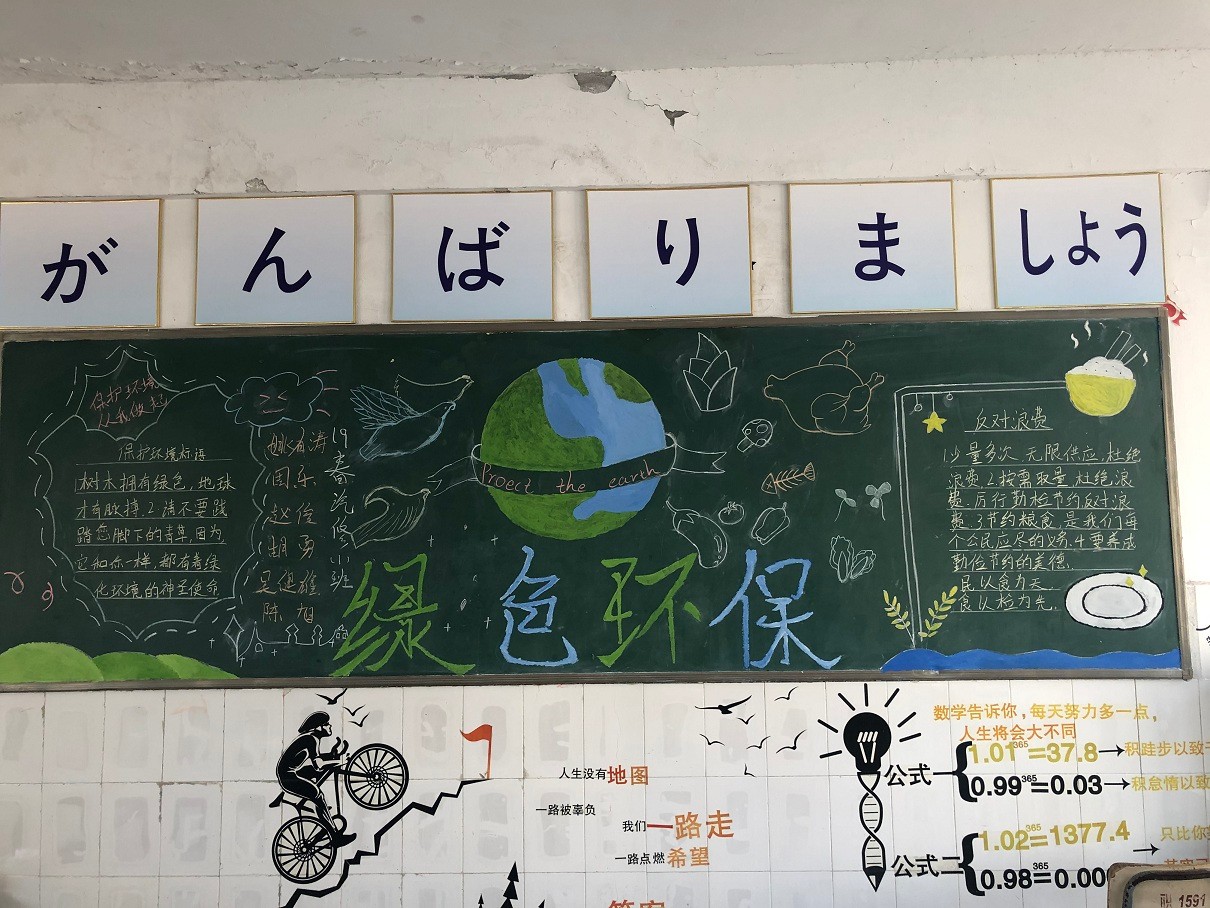 がんばりましょう
保护环境
从我做起
保护环境标语
1树木拥有绿色,地球
才有脉搏.2.请不要践
踏您脚下的青草,因为
它和你一样,都有着绿
化环境的神圣使命
周乐
赵俊
胡勇
陈旭
19春汽修小班
Proect the earth
绿色环保
反对浪费
1少量多次 无限供应,杜绝
浪费.2.按需取量 杜绝浪
费.厉行勤检节约反对浪
费.3节约粮食,是我们每
个公民应尽的义务.4要养成
勤俭节约的美德.
民以食为天
食以检为先.
人生没有地图
一路被辜负
我们一路走
一路点燃希望
答案
数学告诉你,每天努力多一点,
人生将会大不同
公式一
1.01³⁶⁵=37.8→积跬步以致
0.99³⁶⁵=0.03→积怠情以致
公式二
1.02³⁶⁵=1377.4
0.98³⁶⁵=0.00
只比你
1591